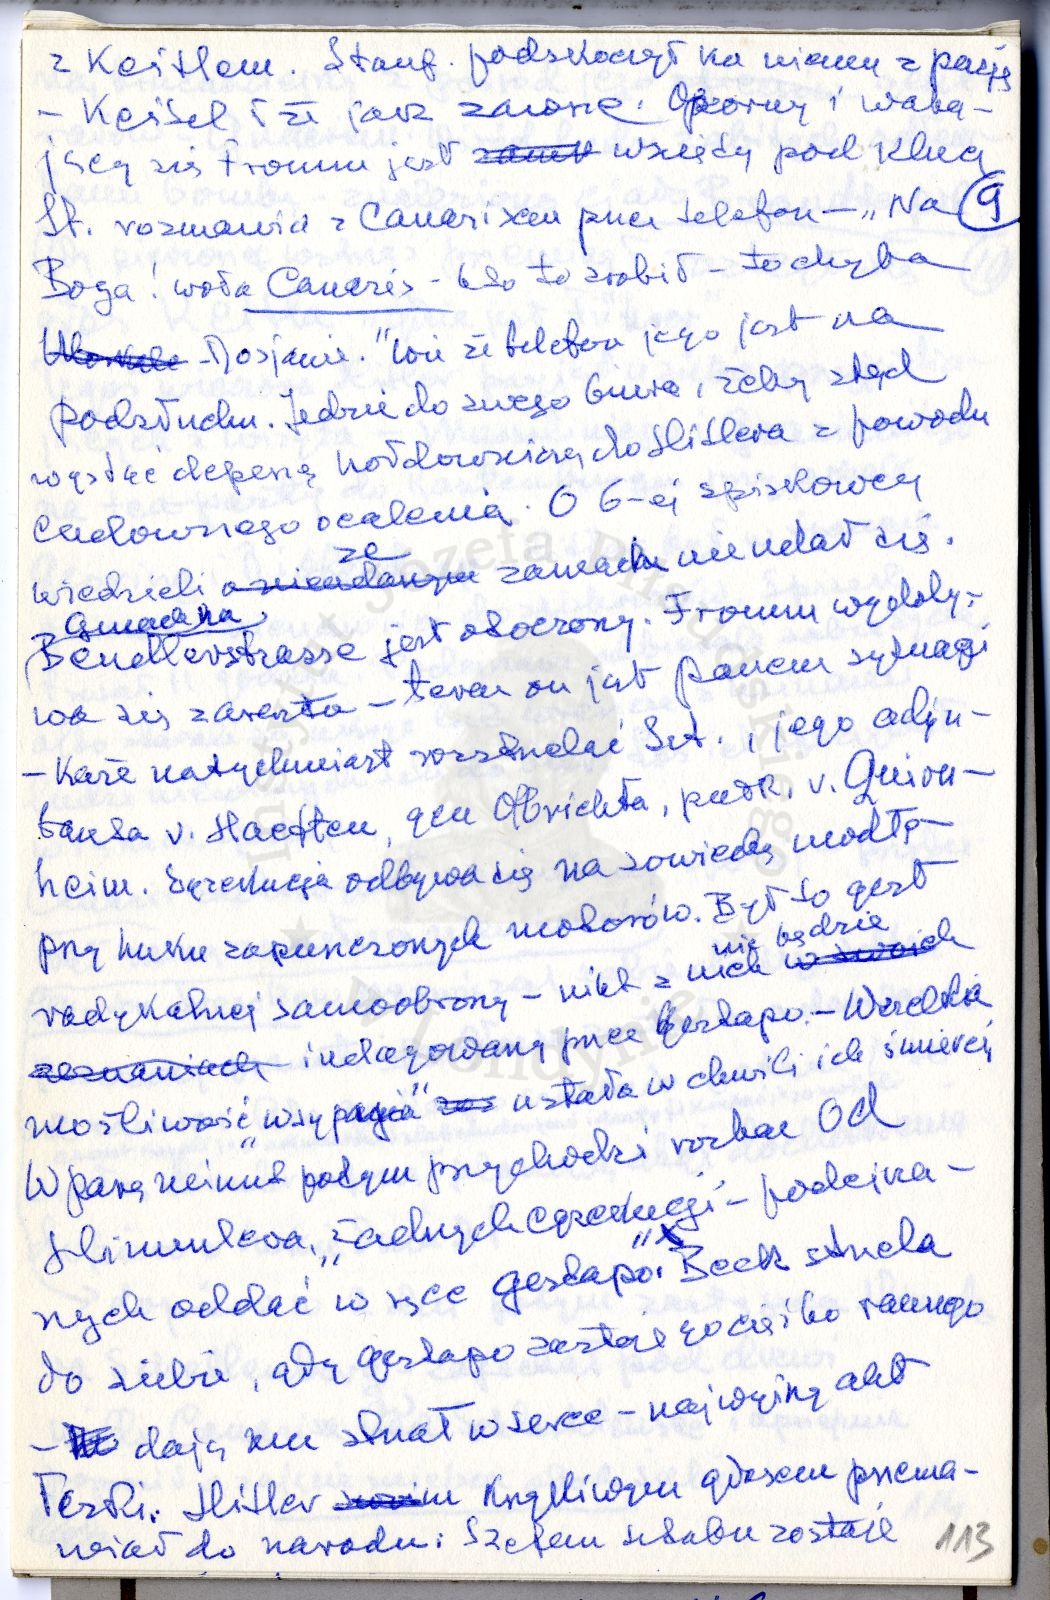 z Keitlem. Stauf. podskoczył ku niemu z pasją
– Keitel łże jak zawsze. Oporny i waha-
jący się Fromm jest wzięty pod klucz
9
St. rozmawia z Canarisem przez telefon – „Na
Boga! woła Canaris – kto to zrobił – to chyba
Rosjanie." Wie że telefon jego jest na
podsłuchu. Jedzie do swego biura, żeby stąd
wysłać depeszę hołdowniczą do Hitlera z powodu
cudownego ocalenia. O 6-ej spiskowcy
wiedzieli że zamach nie udał się.
Gmach na
Bendlerstrasse jest otoczony. Fromm wydoby-
wa się z aresztu – teraz on jest panem sytuacji
– Każe natychmiast rozstrzelać St., jego adju-
tanta v. Haeften, gen Olbrichta, pułk. v. Quirn-
heim. Egzekucja odbywa się na
przy huku zapuszczonych motorów. Był to gest
radykalnej samoobrony – nikt z nich nie będzie
indagowany przez Gestapo. – Wszelka
możliwość „wsypy" ustała w chwili ich śmierci
W parę minut potem przychodzi rozkaz Od
Himmlera, „żadnych egzekucji – podejrza-
nych oddać w ręce gestapo." Beck strzela
do siebie, gdy gestapo zastaje go ciężko rannego
– dają mu strzał w serce – najwyższy akt
łaski. Hitler zgrzytliwym głosem przema-
wiał do narodu: Szefem sztabu zostaje
113
Instytut Józefa Piłsudskiego
w Londynie